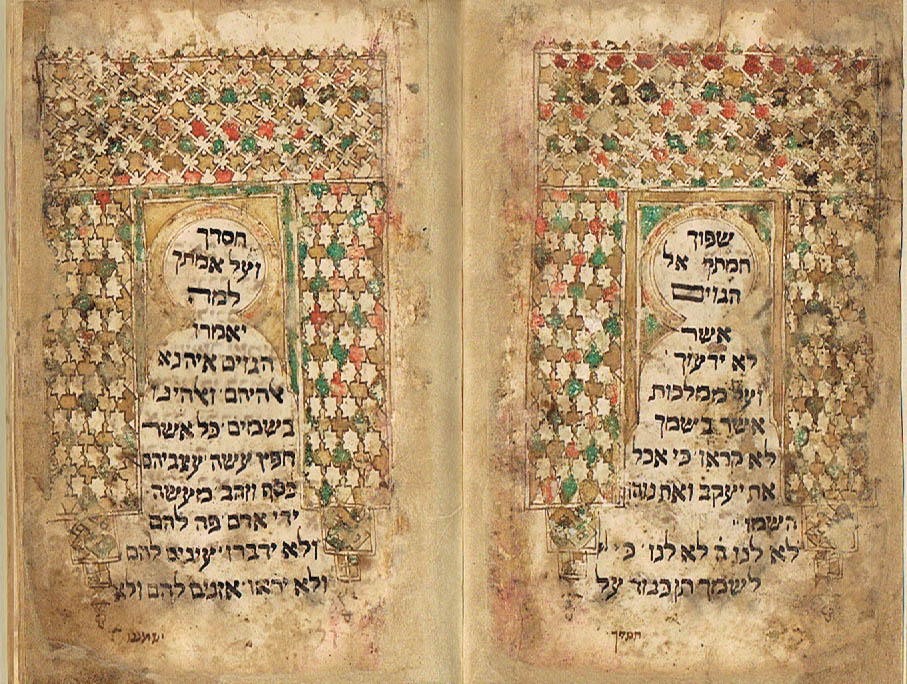 שפוך
חמתך אל
הגוים
אשר
לא ידעוך
ועל ממלכות
אשר בשמך
לא קראו כי אכל
את יעקב ואת נוהו
השמו
לא לנו ה לא לנו כי
לשמך תן כבוד על
חסדך
חסדך
ועל אמתך
למה
יאמרו
הגוים איה נא
אלהיהם ואלהינו
בשמים כל אשר
חפץ עשה עצביהם
כסף וזהב מעשה
ידי אדם פה להם
ולא ידברו עינים להם
ולא יראו אזנים להם ולא
ישמעו